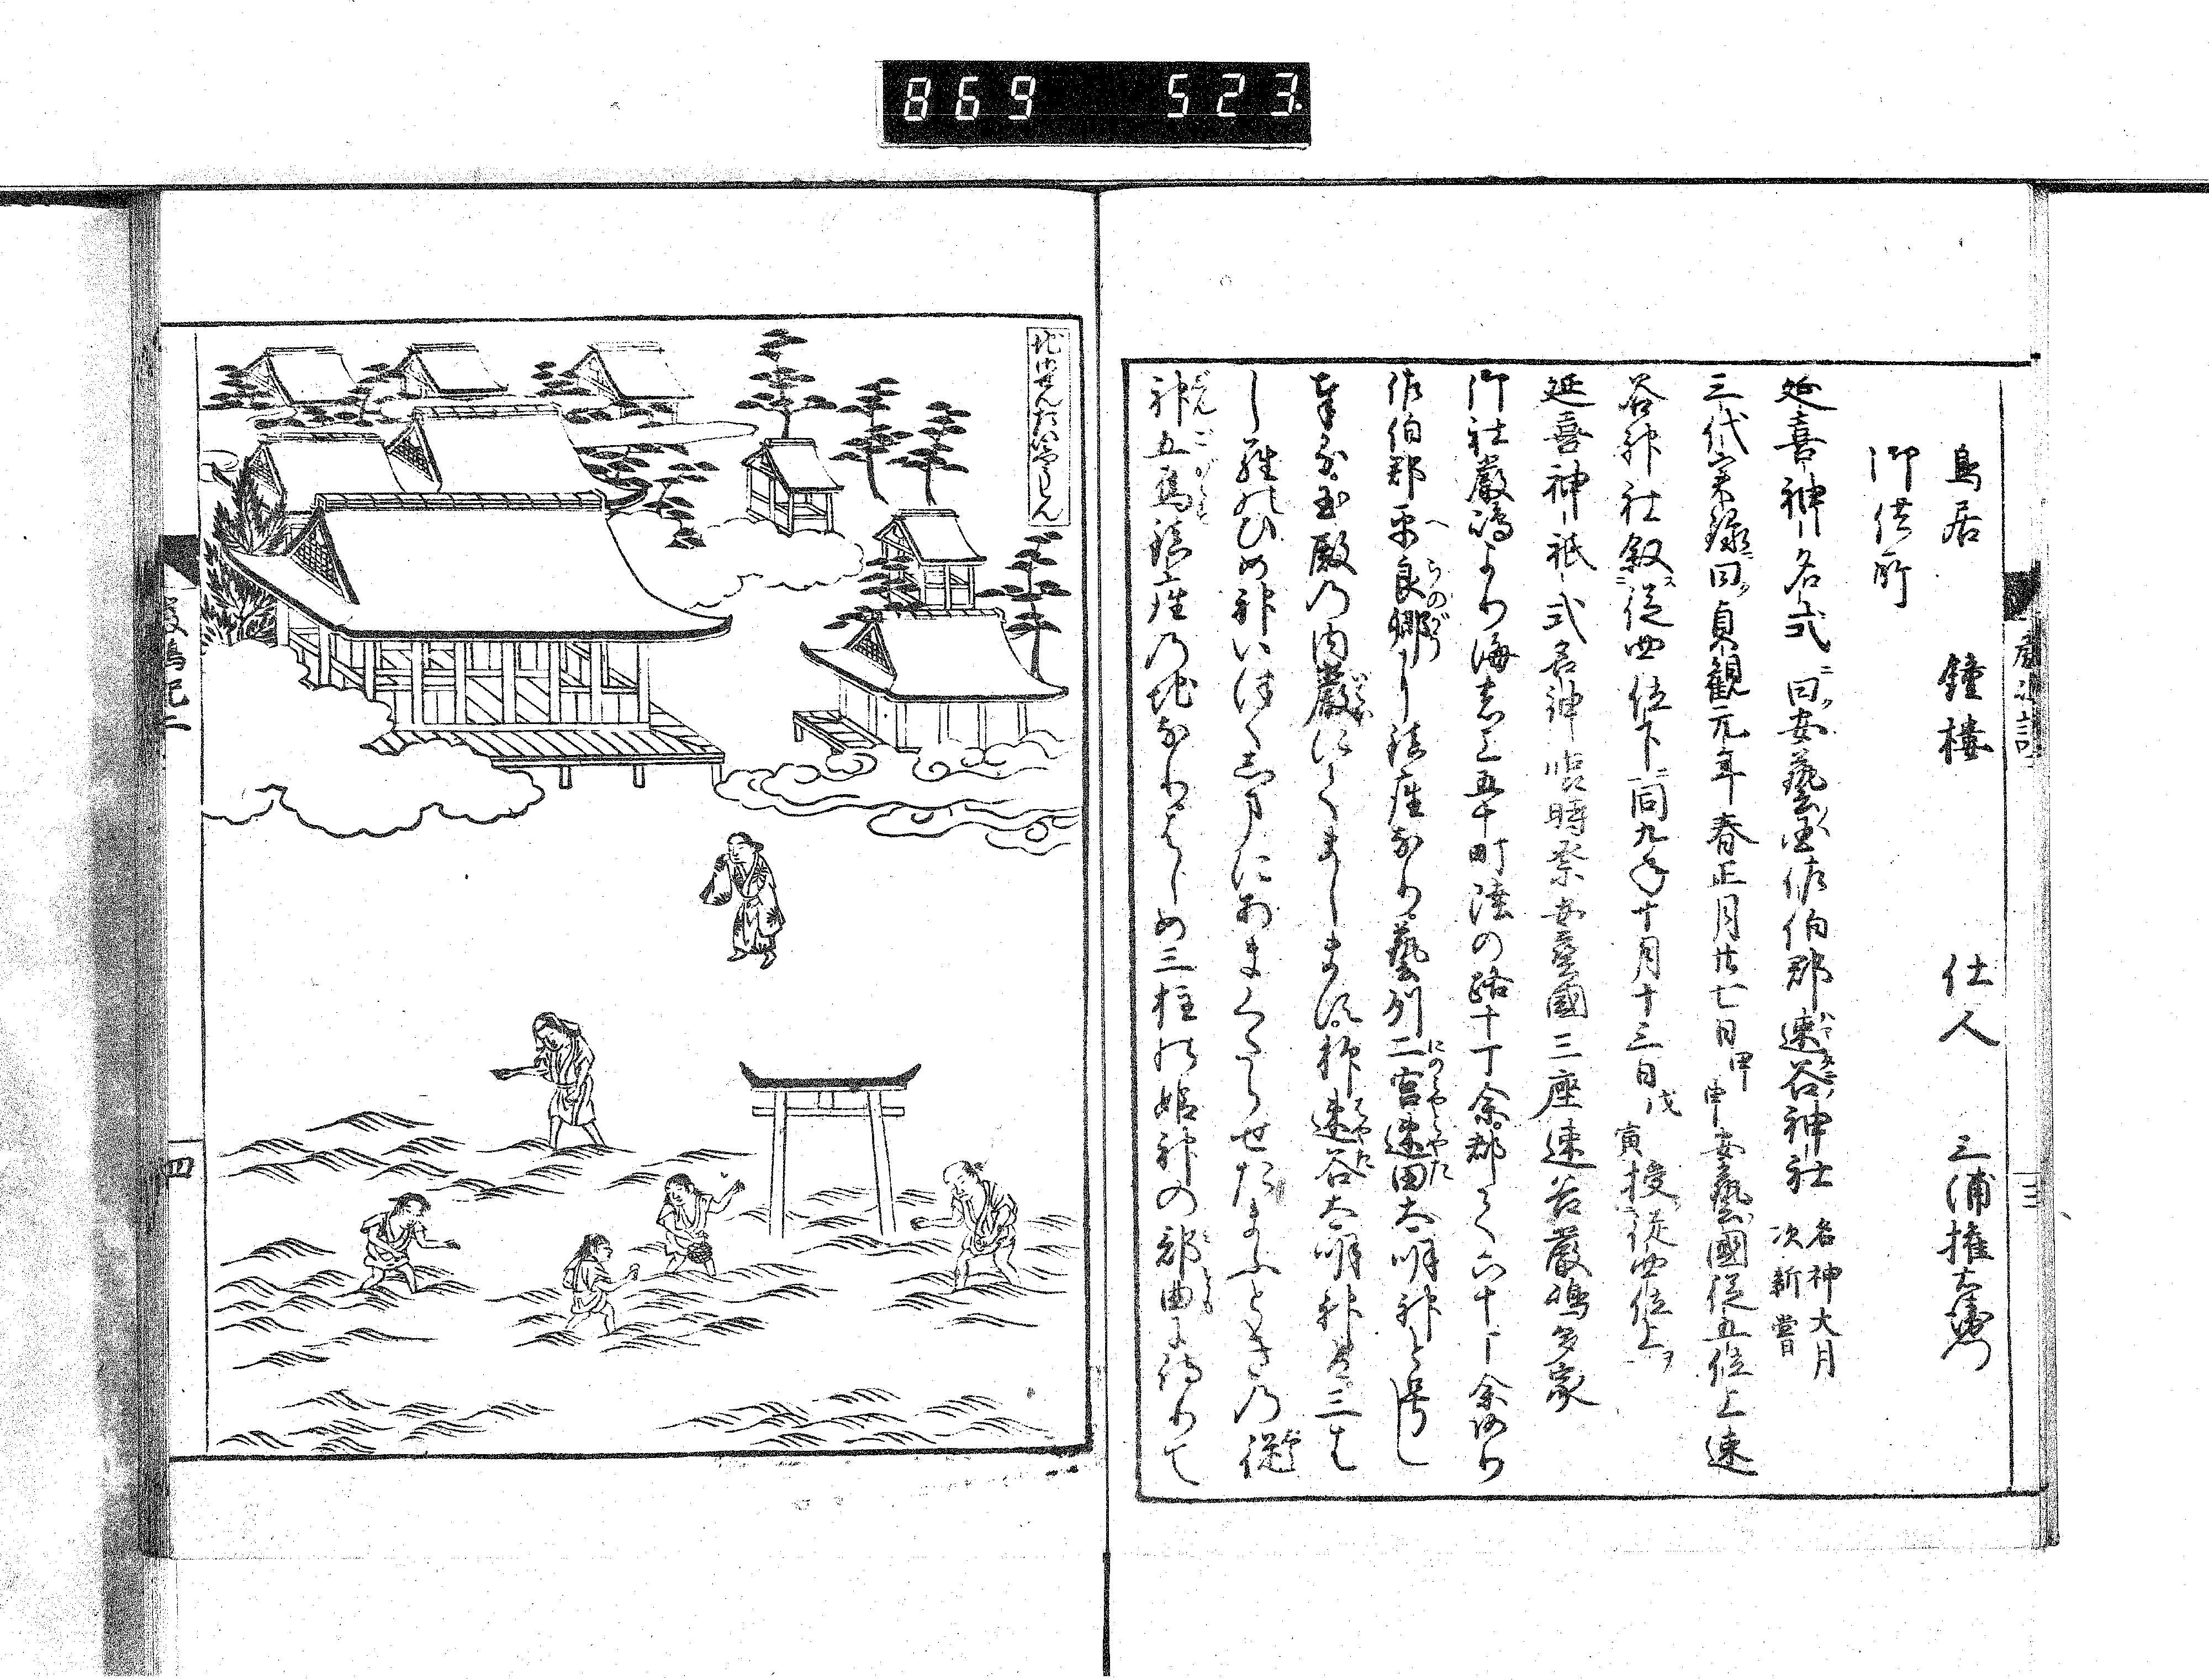 869 523
鳥居 鐘樓 仕人 三浦權左衛門
御供所
延喜神名式ニ曰安藝国佐伯郡速谷神社 名神大月次新嘗
三代実録ニ曰貞観元年春正月廿七日甲申安藝國從五位上速
谷神社叙ス從四位下ニ同九年十月十三日戊寅授從四位上ヲ
延喜神祇式名神臨時祭安藝國三座速谷嚴嶋多家
御社嚴嶋より海上五十町陸の路十丁余郡て六十丁余
佐伯郡平良郷に鎮座なり藝州二宮速田大明神と号し
玉殿乃内嚴にくましま 速谷大明神
ひめ神いつくしまにあまくたらせたまふときの從
神五烏鎮座の地なりはしめ三柱の姫神の部曲
嚴嶋記二
四
三